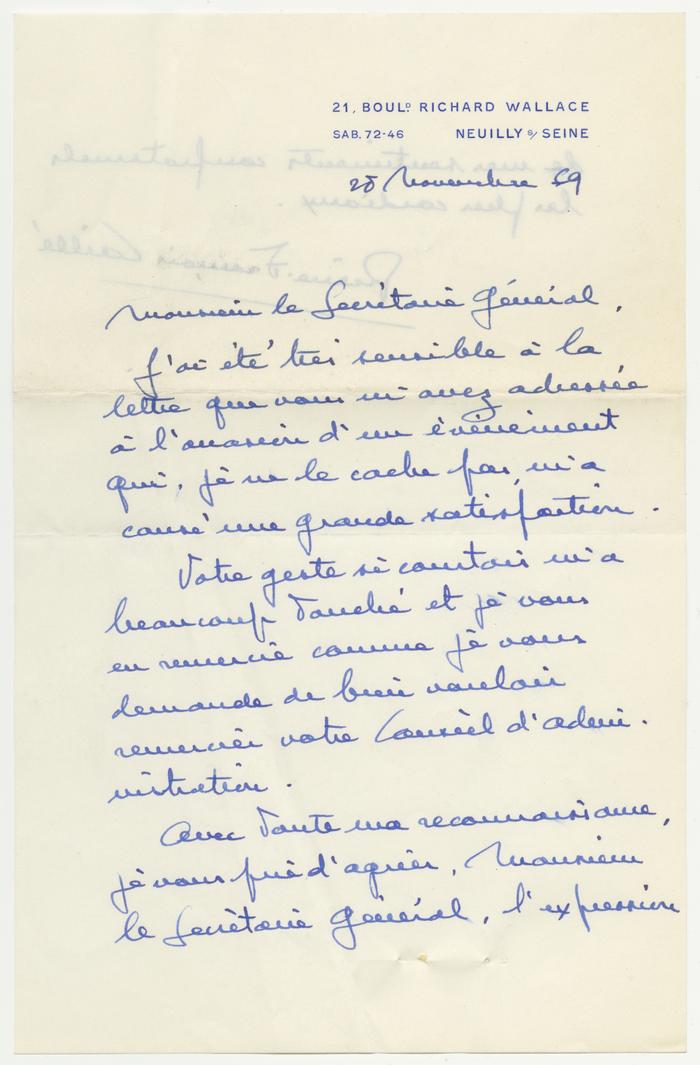 21, BOULD RICHARD WALLACE
SAB. 72-46 NEUILLY S/ SEINE
25 Novembre 59
Monsieur le Secrétaire Général,
J'ai été très sensible à la
lettre que vous m'avez adressée
à l'occasion d'un évènement
qui, je ne le cache pas, m'a
causé une grande satisfaction.
Votre geste si courtois m'a
beaucoup touché et je vous
en remercie comme je vous
demande de bien vouloir
remercier votre Conseil d'admi-
nistration.
Avec toute ma reconnaissance,
je vous prie d'agréer, Monsieur
le Secrétaire Général, l'expression
de mes sentiments confraternels
les plus cordiaux.
Pierre-François Caillé